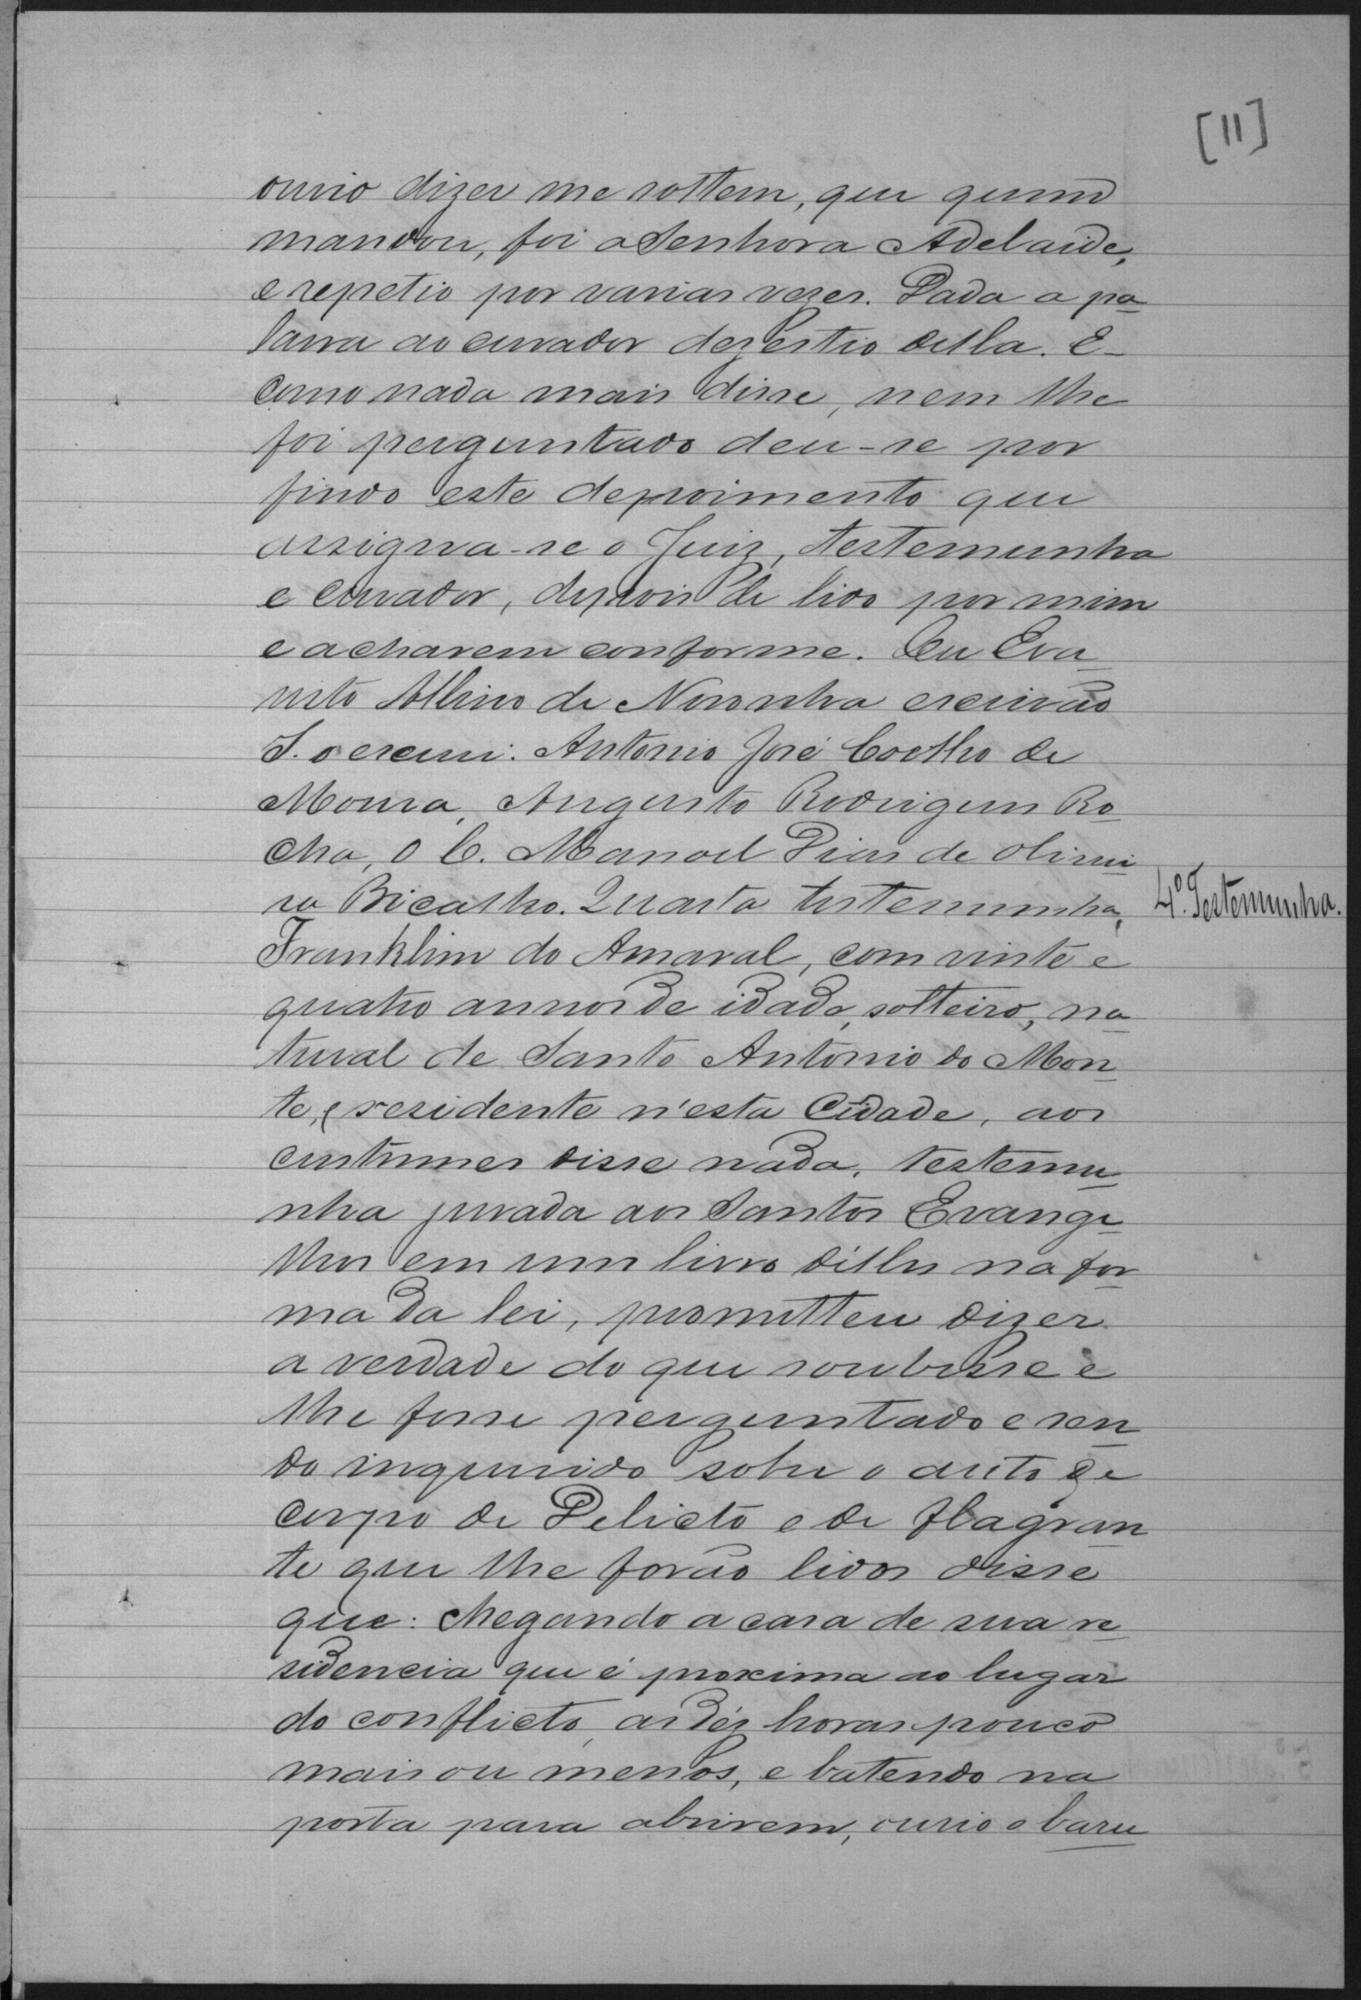 [11]
ouvio dizer me soltem, que quem
mandou, foi a Senhora Adelaide,
e repetio por varias vezes. Dada a pa
lavra ao curador desestio della. E
como nada mais disse, nem lhe
foi perguntado deu-se por
findo este depoimento que
assigna-se o Juiz, testemunha
e curador, depois de lido por mim
e acharem conforme. Eu Eva
risto Albino de Noronha escrivão
I. o escrevi. Antonio José Coelho de
Moura, Augusto Rodrigues Ro
cha, O C. Manoel Dias de Olivei
ra Bicalho. Quarta testemunha,
4º. Testemunha.
Franklim do Amaral, com vinte e
quatro annos de idade, solteiro, na
tural de Santo Antonio do Mon
te, e residente n'esta Cidade, aos
custumes disse nada, testemu
nha jurada aos Santos Evange
lhos em um livro d'elles na for
ma da lei, prometteu dizer
a verdade do que soubesse e
lhe fosse perguntado e sen
do inquerido sobre o auto de
corpo de Delicto e de flagran
te que lhe forão lidos disse
que: chegando a casa de sua re
sidencia que é proxima ao lugar
do conflicto, as déz horas pouco
mais ou menos, e batendo na
porta para abrirem, ouvio o baru